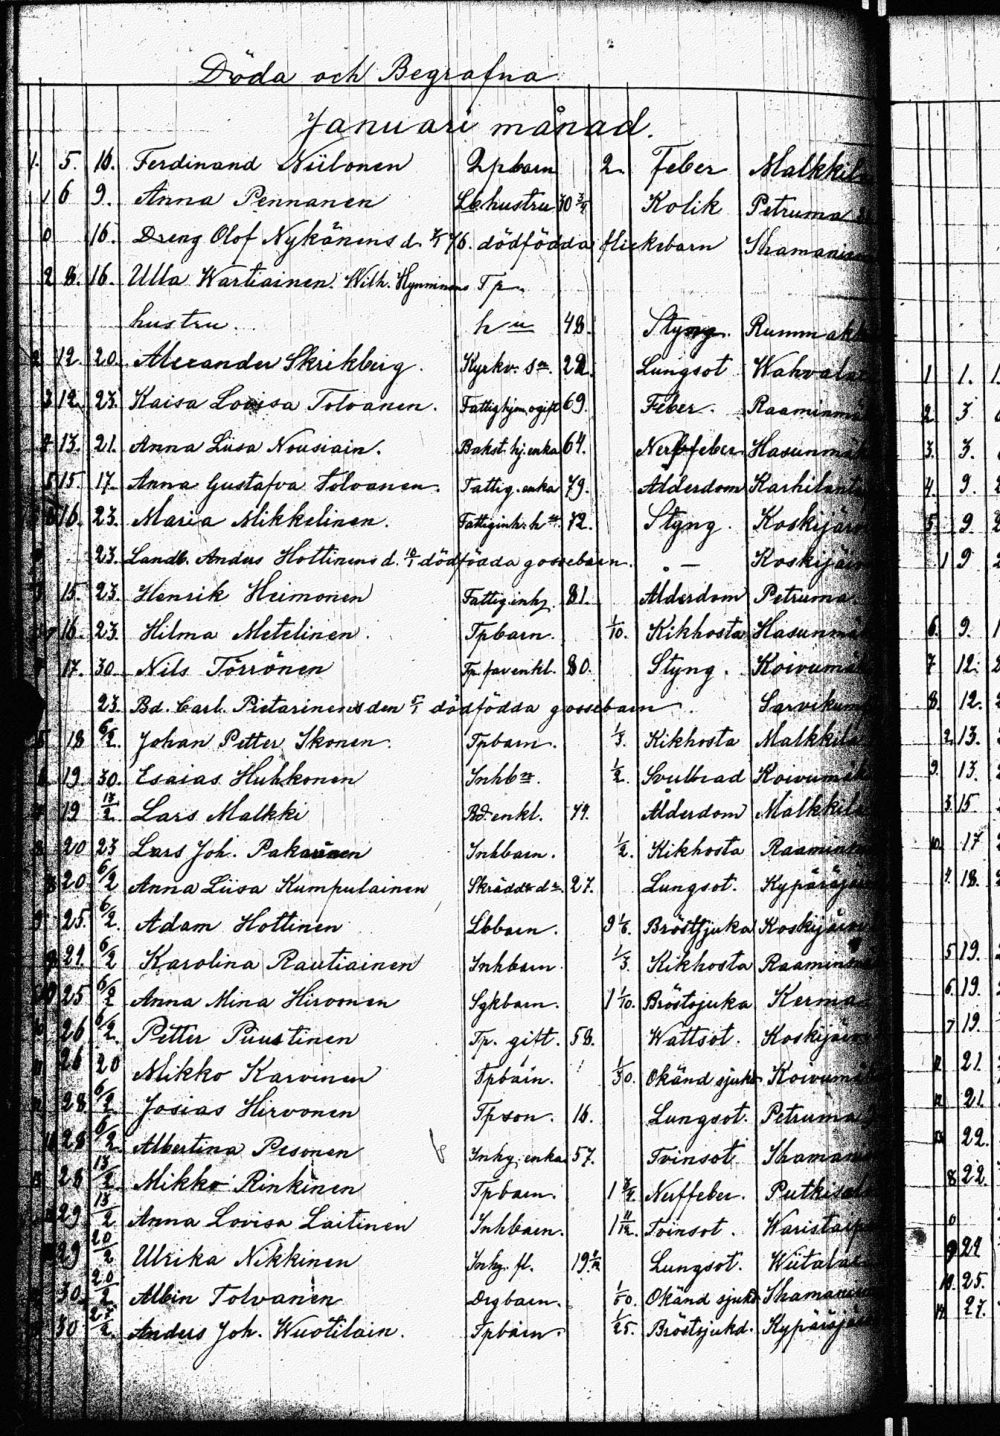 Döda och Begrafna
Januari månad.
1. 5. 16. Ferdinand Niilonen Tpbarn 2. Feber Malkkila
1 6 9. Anna Pennanen Lbhustru 30 3/4 Kolik Petruma
0 16. Dreng Olof Nykänens d. 76. dödfödda flickebarn Shamanien
2 8. 16. Ulla Wartiainen. Wilh. Hynninens Tp.
hustru. hu 48. Styng. Rummak
2 12. 20. Alexander Skrikberg. Kyrkv. sn. 22. Lungsot Wahvala
3 12. 23. Kaisa Lovisa Tolvanen. Fattighjon ogift 69. Feber. Raaminmä
4 13. 21. Anna Liisa Nousiain. Bakst. hj. enka 64. Nerffeber Hasunmä
5 15. 17. Anna Gustafva Tolvanen. Fattig. enka 79. Ålderdom Karhilanta
16. 23. Maria Mikkelinen. Fattiginh. h 72. Styng. Koskijär
23. Landb. Anders Hottinens d. dödfödda gossebarn. — Koskijär
15. 23. Henrik Heimonen Fattiginh 81. Ålderdom Petruma.
16. 23. Hilma Metelinen. Tpbarn. 1/10. Kikhosta Hasunmä
17. 30. Nils Törrönen Tp. far enkl. 80. Styng. Koivumä
23. Bd. Carl. Pietarinens den dödfödda gossebarn. Sarvikum
18 6/2. Johan Petter Ikonen. Tpbarn. 1/3. Kikhosta Malkkila
19. 30. Esaias Huhkonen Inhbn. 1/2. Svulbrad Koivumäk
19 13/2 Lars Malkki Bd. enkl. 74. Ålderdom Malkkila
20 23 Lars Joh. Pakarinen Inhbarn. 1/2. Kikhosta Raaminm
20. 6/2 Anna Liisa Kumpulainen Skrädd. d 27. Lungsot. Kypäräjä
25. 6/2. Adam Hottinen Lbbarn. 9 1/6. Bröstsjuka Koskijär
21. 6/2 Karolina Rautiainen Inhbarn. 1/3. Kikhosta Raaminm
25 6/2 Anna Mina Hirvonen Sgkbarn. 1 1/10. Bröstsjuka Kerma
26 6/2. Petter Puustinen Tp. gift. 58. Wattsot. Koskijär
26 20 Mikko Karvinen Tpbarn. 1/30. Okänd sjukd. Koivumä
28 6/2 Josias Hirvonen Tpson. 16. Lungsot. Petruma
28 6/2. Albertina Pesonen Inhg. enka 57. Tvinsot. Shaman
28 13/2 Mikko Rinkinen Tpbarn. 1 3/4. Nerffeber. Putkisal
29. 13/2 Anna Lovisa Laitinen Inhbarn. 1 11/12. Tvinsot. Waristaip
29 20/2 Ulrika Nikkinen Inhg. fl. 19 Lungsot. Wiitala
30. 20/2 Albin Tolvanen Drgbarn. 1/60. Okänd sjukd. Shaman
30 27/2. Anders Joh. Wuotilain. Tpbarn. 1/25. Bröstsjukd. Kypäräjä
1 1. 1.
2. 3
3. 3.
4. 9. 2
5. 9. 2
1 9 2
6. 9. 1
7 12. 2
8. 12. 2
2. 13. 2
9. 13. 2
3. 15
10. 17 2
4. 18. 2
5 19. 2
6. 19. 2
7 19.
11. 21.
12. 21.
13. 22.
8 22.
0
9 22
10. 25.
14. 27.